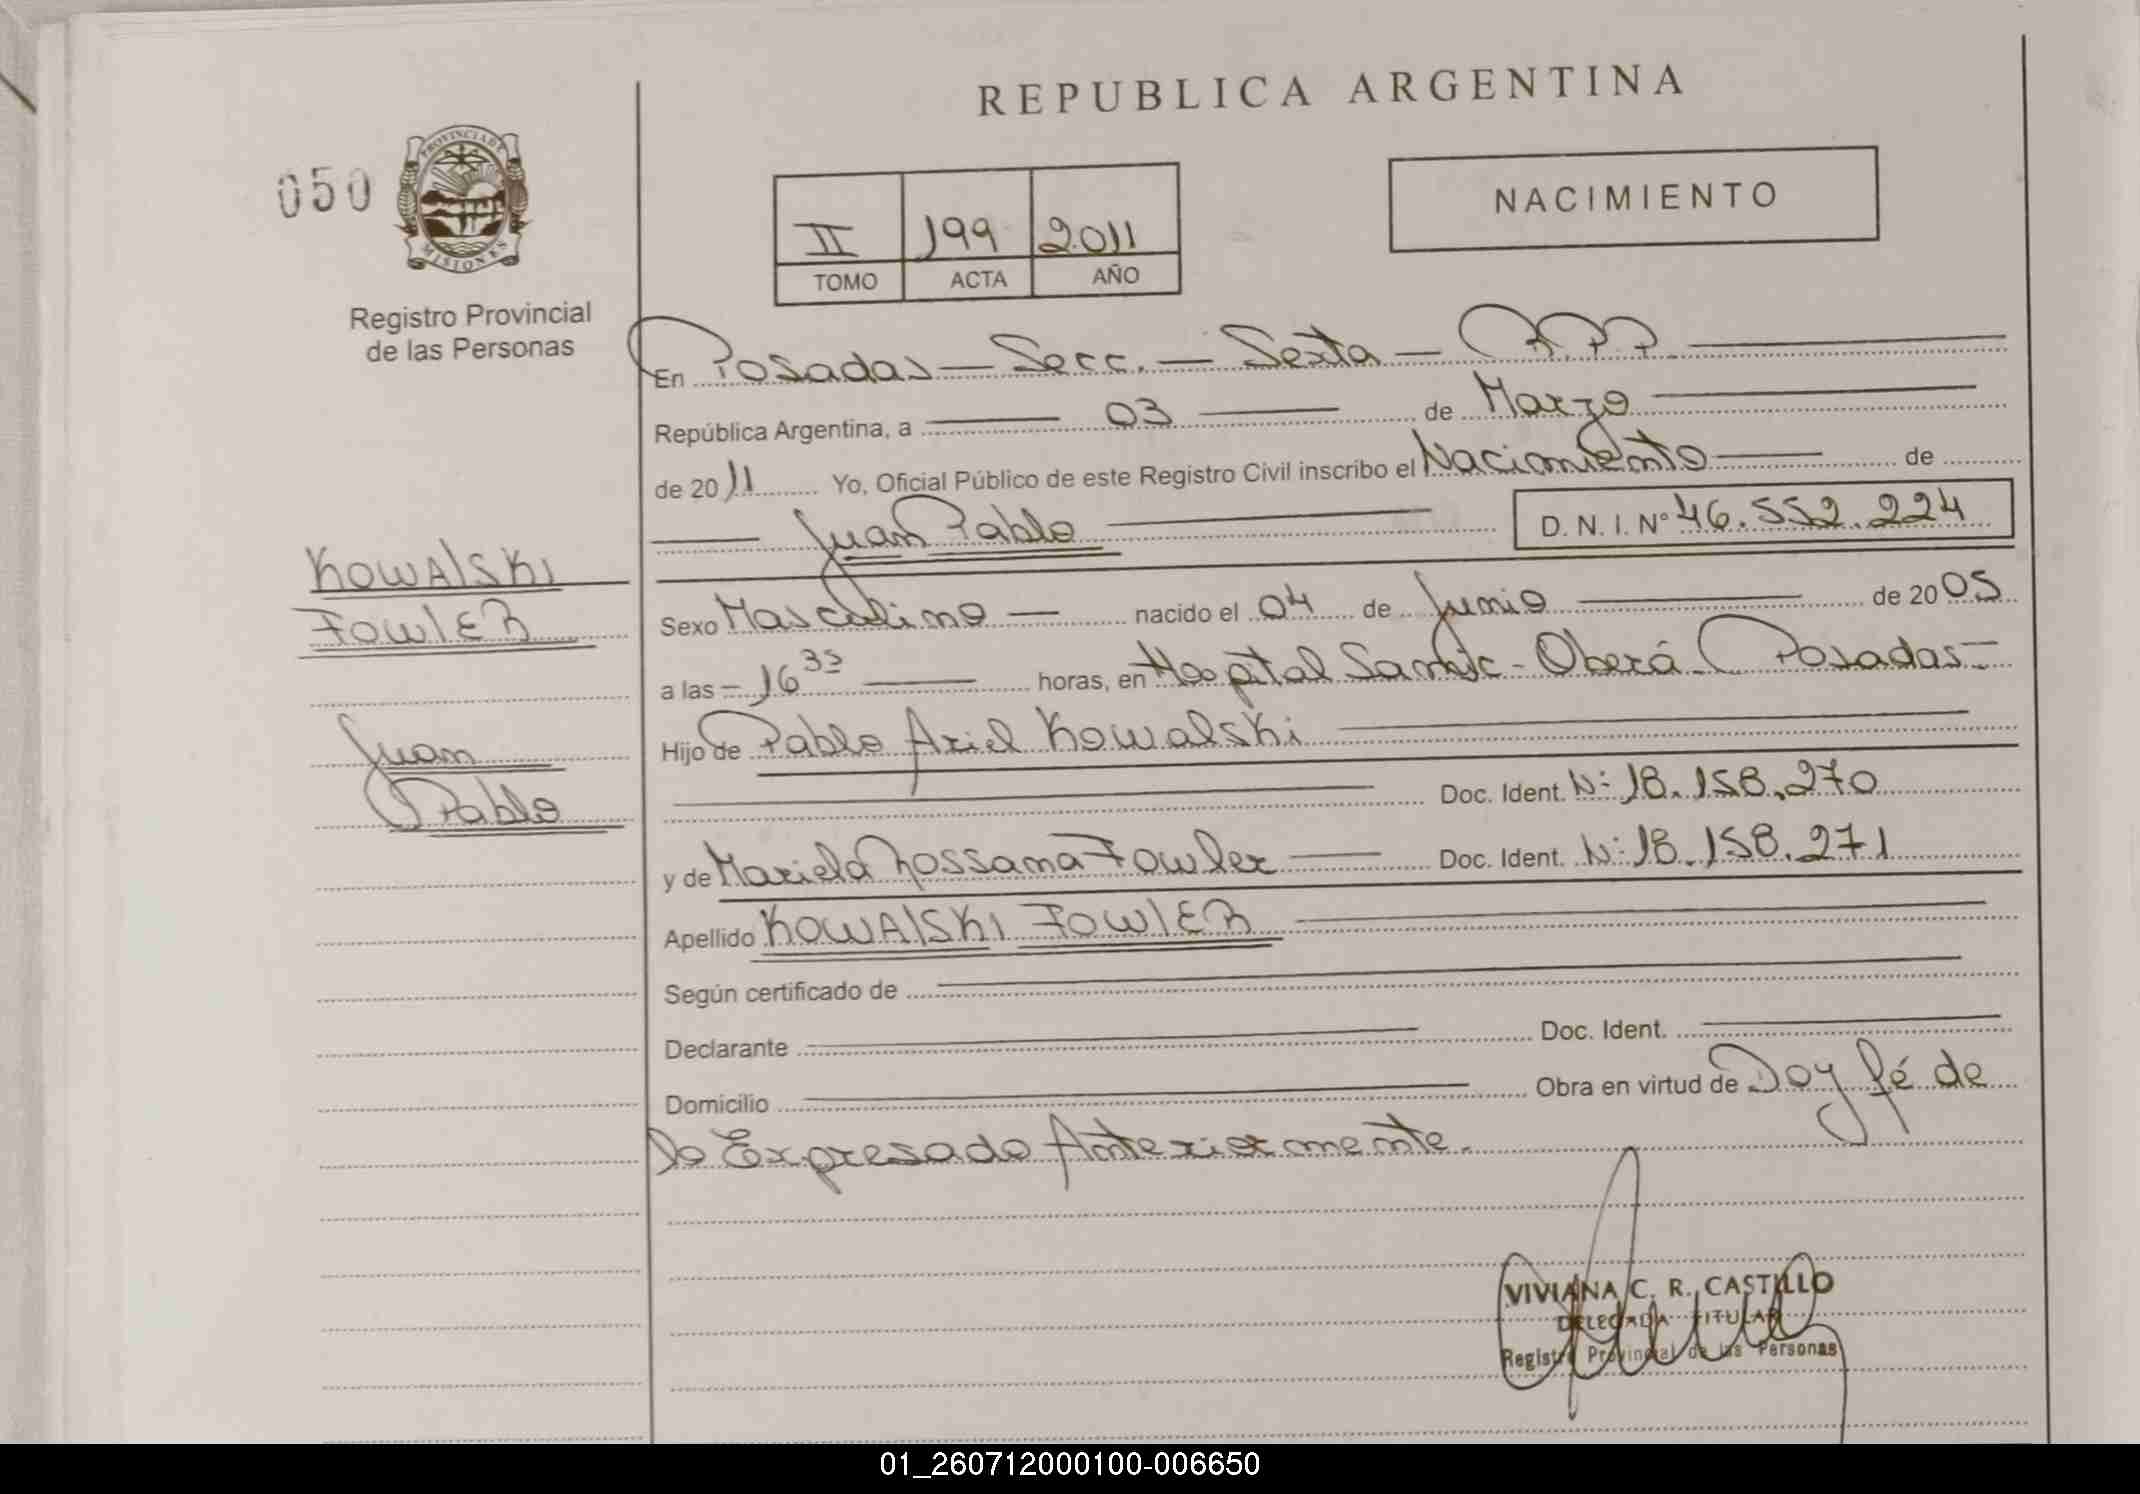 REPUBLICA ARGENTINA
050
PROVINCIA DE
MISIONES
Registro Provincial
de las Personas
II 199 2011
TOMO ACTA AÑO
NACIMIENTO
En Posadas — Secc. — Sexta — R.P.P.
República Argentina, a 03 de Marzo
de 2011 Yo, Oficial Público de este Registro Civil inscribo el Nacimiento de
Juan Pablo D. N. I. Nº 46.552.224
KOWAlSKI
FOWlER
Juan
Pablo
Sexo Masculino — nacido el 04 de Junio de 2005
a las - 16 35 horas, en Hospital Samic - Oberá - Posadas -
Hijo de Pablo Ariel Kowalski
Doc. Ident. N: 18.158.270
y de Mariela Rossana Fowler Doc. Ident. N: 18.158.271
Apellido KOWAlSKI FOWlER
Según certificado de
Declarante Doc. Ident.
Domicilio Obra en virtud de Doy fé de
lo Expresado Anteriormente.
VIVIANA C. R. CASTILLO
DELEGADA TITULAR
Registro Provincial de las Personas
01_260712000100-006650